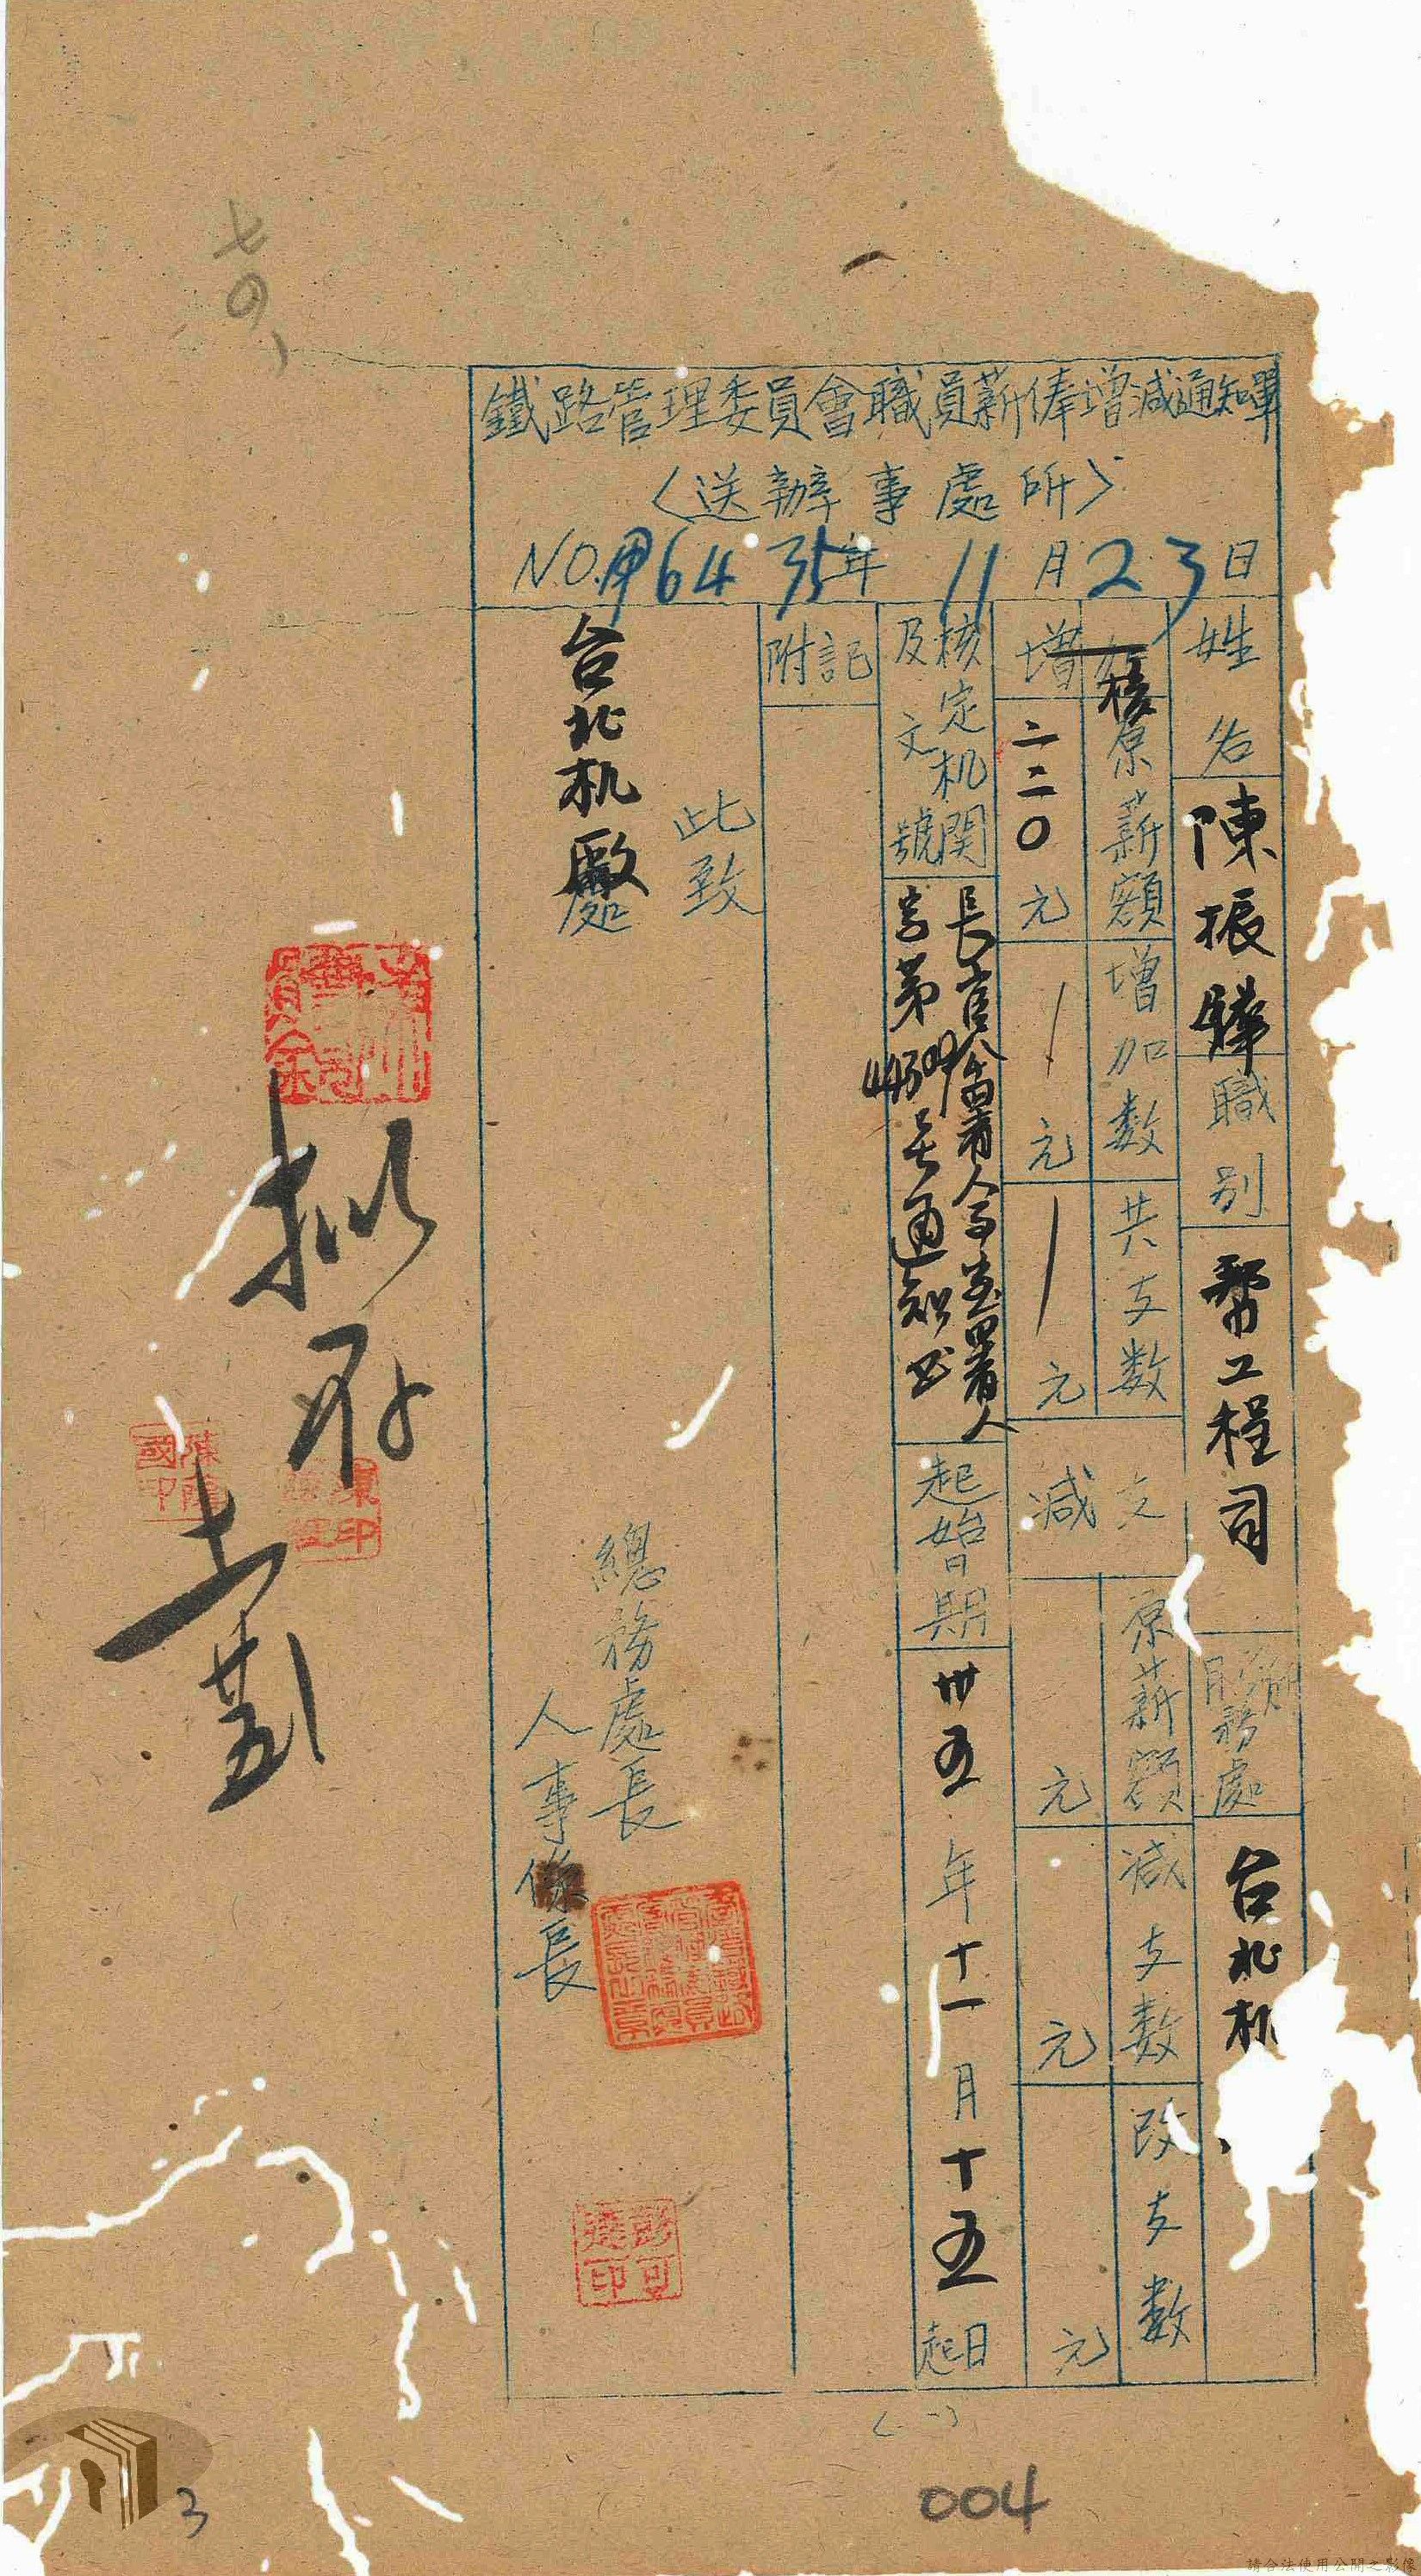 鐵路管理委員會職員薪俸增減通知單
〈送辦事處所〉
NO.甲64 35年 11月23日
姓名 陳振鏵 職別 幫工程司 服務處 台北机
核 原薪額 增加數 共支數
增 二二〇元 元 元
減支 原薪額 減支數 改支數
元 元 元
核定机関及文號 長官公署人
字第 号通知
起始日期 卅五年十一月十五日起
附記
此致
台北机廠
處
總務處長
人事
長
彭可
印
擬存
十一
七
(一)
004
3
請合法使用公開之影像